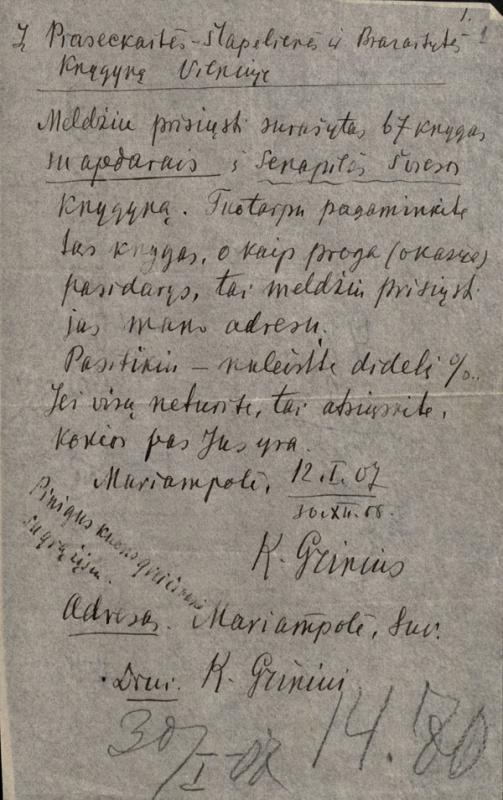 1.
1
Į Piaseckaitės-Šlapelienės ir Brazaitytės
Knygyną Vilniuje
Meldžiu prisiųsti surašytas 67 knygas
su apdarais į Senapilės Šviesos
Knygyną. Tuotarpu pagaminkite
tas knygas, o kaip proga (okazija)
pasidarys, tai meldžiu prisiųsti
jas mano adresu.
Pasitikiu – nuleisite didelį %.
Jei visų neturite, tai atsiųskite,
kokios pas Jus yra.
Mariampolė, 12.I.07
30.XII.06.
K. Grinius
Pinigus kuogreičiausiai
sugrąžįsiu.
Adresas. Mariampolė, Suv.
Drui. K. Griniui
30/I-07
14.80